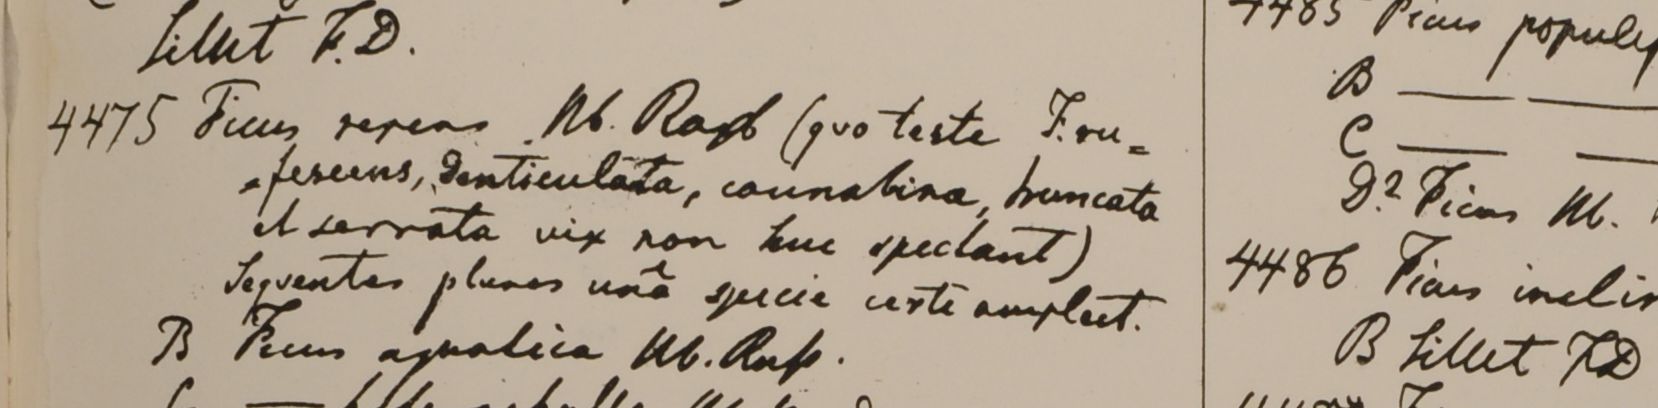 Sillet F.D.
4475 Ficus repens Hb. Roxb (quo teste F. ru=
=fescens, denticulata, cannabina, truncata
et serrata vix non huc spectant)
Seqventes plures unâ specie certe amplect.
B Ficus aquatica Hb. Roxb.
4485 Ficus
B
C
D? Ficus Hb.
4486 Ficus
B Sillet F.D